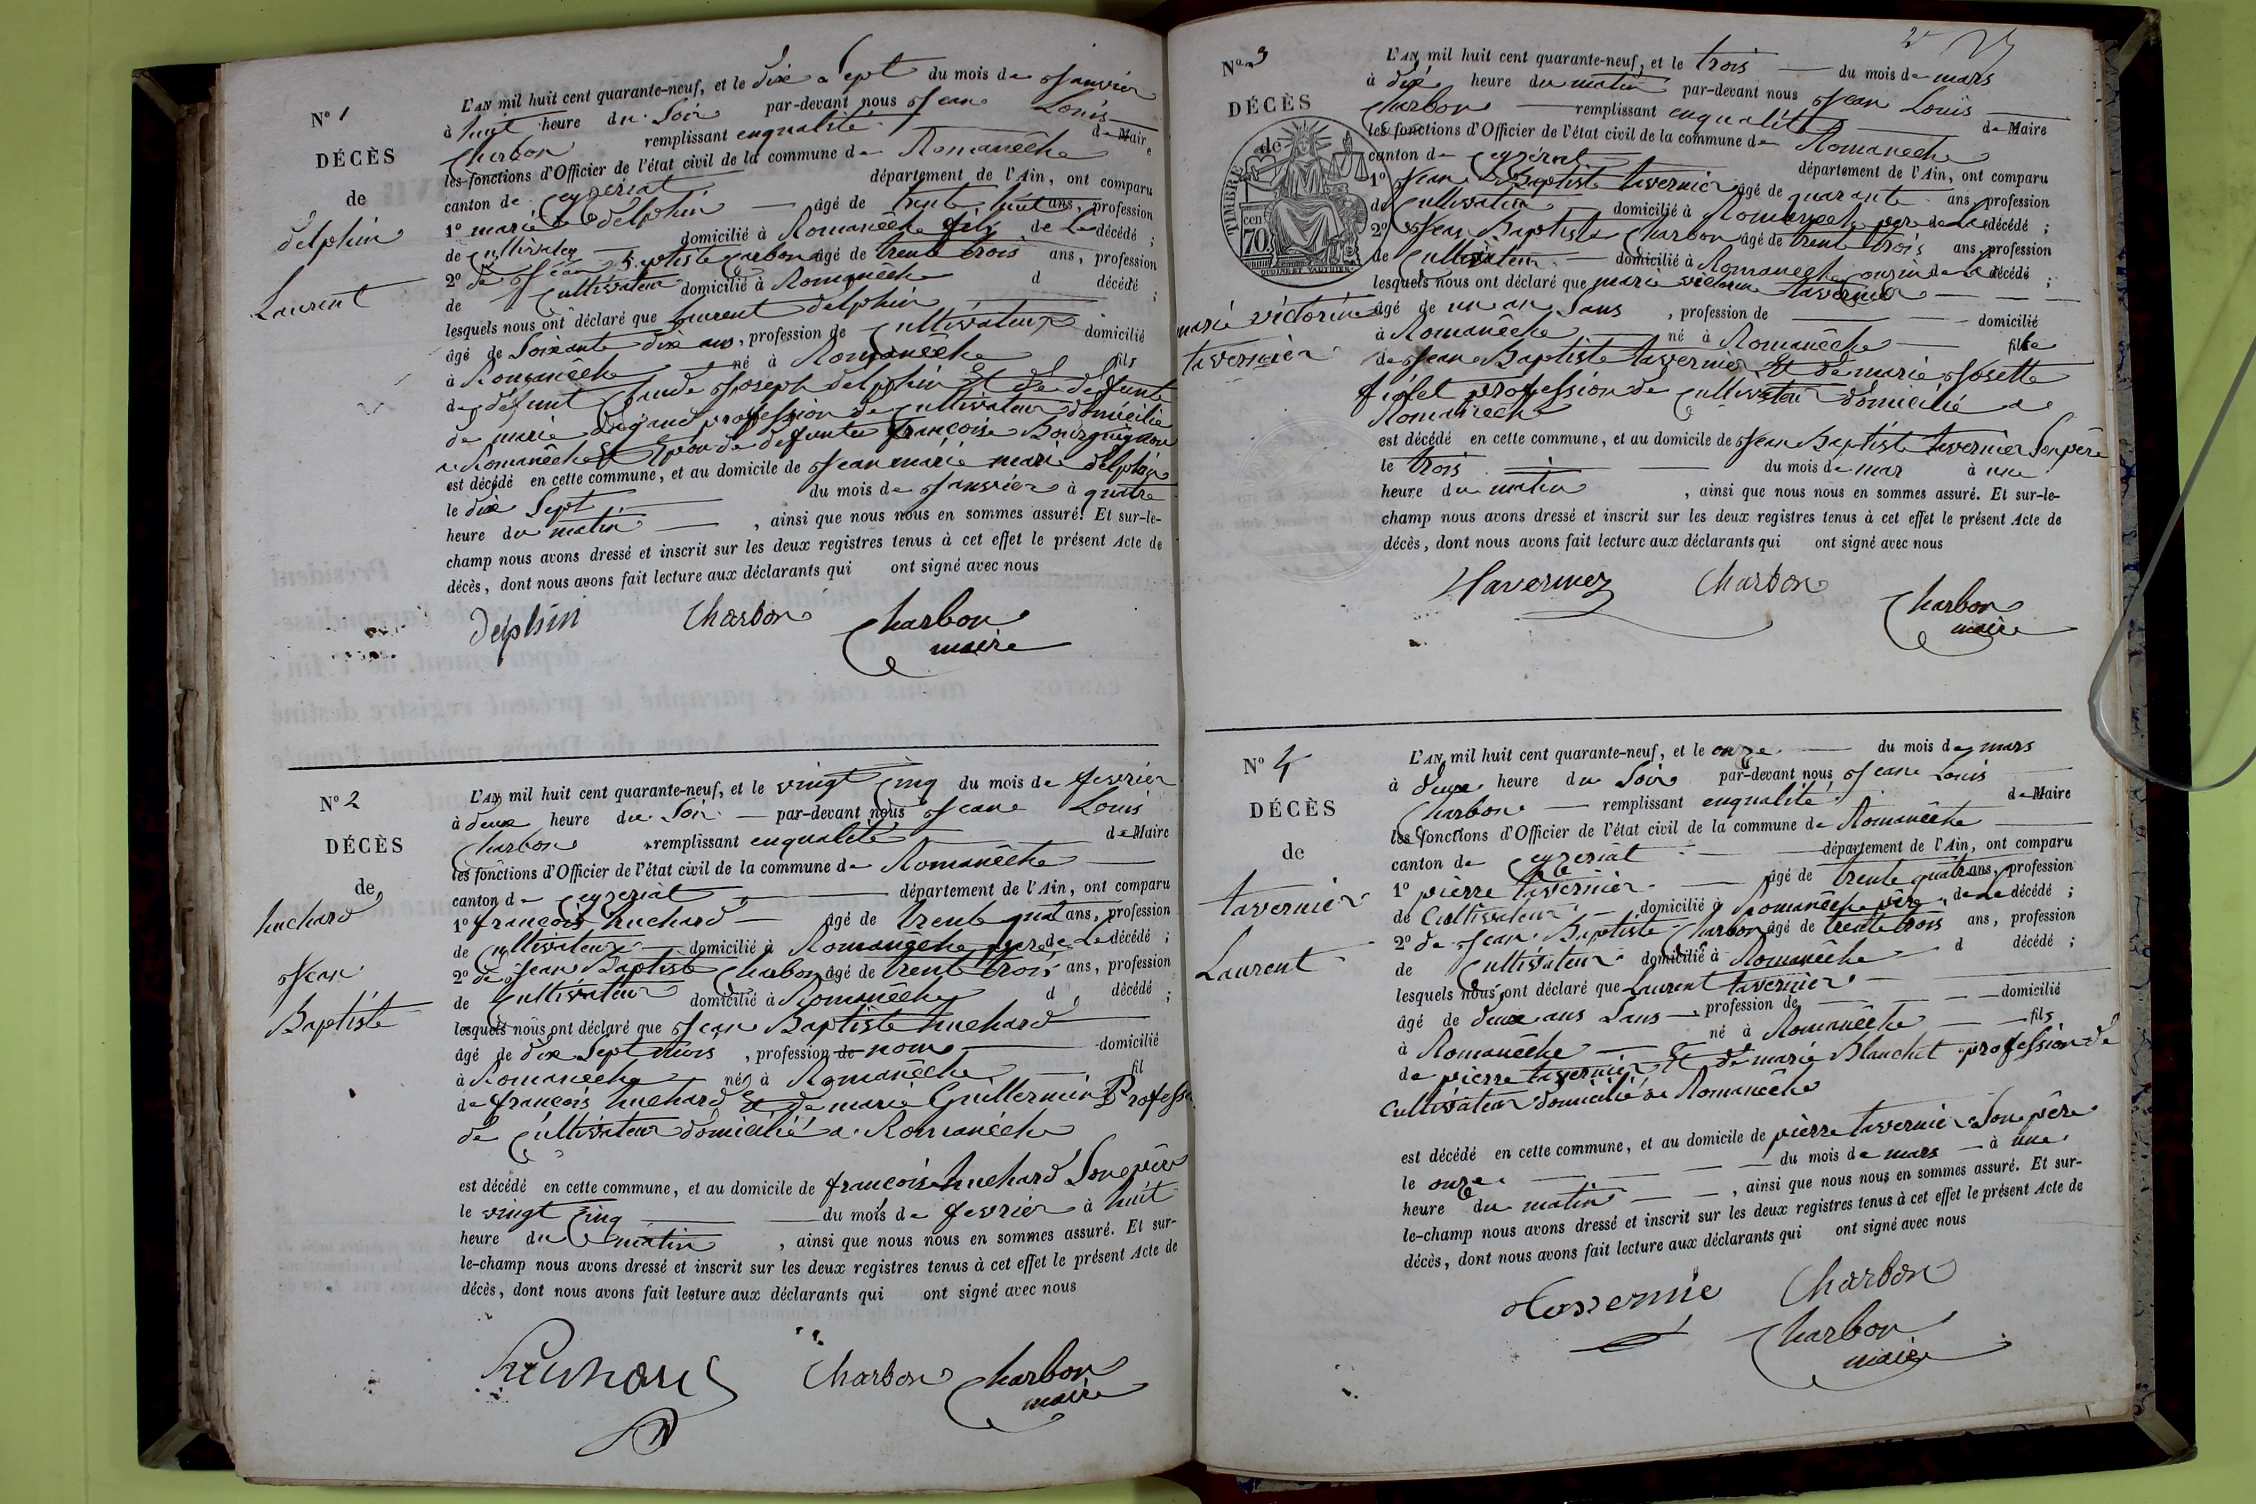 N° 1
DÉCÈS
de
delphin
Laurent
L'AN mil huit cent quarante-neuf, et le dix a Sept du mois de Janvier
à huit heure du Soir par-devant nous Jean Louis
Charbon remplissant enqualité de Maire
les fonctions d'Officier de l'état civil de la commune de Romanêche
canton de Ceyzeriat département de l'Ain, ont comparu
1° marie delphin âgé de trente huit ans, profession
de Cultivateur domicilié à Romanêche fils de Le décédé ;
2° de Jean Baptiste Charbon âgé de trente trois ans, profession
de Cultivateur domicilié à Romanêche d décédé ;
lesquels nous ont déclaré que Laurent delphin
âgé de Soixante dix ans, profession de Cultivateur domicilié
à Romanêche né à Romanêche fils
de defunt Claude Joseph delphin Et de defunte
de marie profession de Cultivateur domicilié
a Romanêche Et Epoux de defunte françoise Bourguignon
est décédé en cette commune, et au domicile de Jean marie marie delphin
le dix Sept du mois de Janvier à quatre
heure du matin , ainsi que nous nous en sommes assuré. Et sur-le-
champ nous avons dressé et inscrit sur les deux registres tenus à cet effet le présent Acte de
décès, dont nous avons fait lecture aux déclarants qui ont signé avec nous
Delphin Charbon Charbon
maire
N° 2
DÉCÈS
de
huchard
Jean
Baptiste
L'AN mil huit cent quarante-neuf, et le vingt Cinq du mois de fevrier
à deux heure du Soir par-devant nous Jean Louis
Charbon remplissant enqualité de Maire
les fonctions d'Officier de l'état civil de la commune de Romanêche
canton de Ceyzeriat département de l'Ain, ont comparu
1° françois huchard âgé de trente quat ans, profession
de Cultivateur domicilié à Romanêche pere de Le décédé ;
2° de Jean Baptiste Charbon âgé de trente trois ans, profession
de Cultivateur domicilié à Romanêche d décédé ;
lesquels nous ont déclaré que Jean Baptiste huchard
âgé de dix Sept mois , profession de nom domicilié
à Romanêche né à Romanêche fil
de françois huchard Et de marie Guillermin Professi
de Cultivateur domicilié a Romanêche
est décédé en cette commune, et au domicile de françois huchard Son père
le vingt Cinq du mois de fevrier à huit
heure du matin , ainsi que nous nous en sommes assuré. Et sur-
le-champ nous avons dressé et inscrit sur les deux registres tenus à cet effet le présent Acte de
décès, dont nous avons fait lecture aux déclarants qui ont signé avec nous
huchard Charbon Charbon
maire
2
N° 3
DÉCÈS
de
TIMBRE
70 cen
marie victorine
tavernier
L'AN mil huit cent quarante-neuf, et le trois du mois de mars
à dix heure du matin par-devant nous Jean Louis
Charbon remplissant enqualité de Maire
les fonctions d'Officier de l'état civil de la commune de Romanêche
canton de Ceyzeriat département de l'Ain, ont comparu
1° Jean Baptiste tavernier âgé de quarante ans, profession
de Cultivateur domicilié à Romanêche pere de La décédé ;
2° Jean Baptiste Charbon âgé de trente trois ans, profession
de Cultivateur domicilié à Romanêche cousin de La décédé ;
lesquels nous ont déclaré que marie victorine tavernier
âgé de un an Sans , profession de domicilié
à Romanêche né à Romanêche fille
de Jean Baptiste tavernier Et de marie Josette
profession de Cultivateur domicilié a
Romanêche
est décédé en cette commune, et au domicile de Jean Baptiste tavernier Son père
le trois du mois de mar à une
heure du matin , ainsi que nous nous en sommes assuré. Et sur-le-
champ nous avons dressé et inscrit sur les deux registres tenus à cet effet le présent Acte de
décès, dont nous avons fait lecture aux déclarants qui ont signé avec nous
Tavernier Charbon Charbon
maire
N° 4
DÉCÈS
de
tavernier
Laurent
L'AN mil huit cent quarante-neuf, et le onze du mois de mars
à deux heure du Soir par-devant nous Jean Louis
Charbon remplissant enqualité de Maire
les fonctions d'Officier de l'état civil de la commune de Romanêche
canton de Ceyzeriat département de l'Ain, ont comparu
1° pierre tavernier âgé de trente quatr ans, profession
de Cultivateur domicilié à Romanêche père de Le décédé ;
2° de Jean Baptiste Charbon âgé de trente trois ans, profession
de Cultivateur domicilié à Romanêche d décédé ;
lesquels nous ont déclaré que Laurent tavernier
âgé de deux ans Sans profession de domicilié
à Romanêche né à Romanêche fils
de pierre tavernier Et de marie Blanchet profession de
Cultivateur domicilié a Romanêche
est décédé en cette commune, et au domicile de pierre tavernie Son père
le onze du mois de mars à une
heure du matin , ainsi que nous nous en sommes assuré. Et sur-
le-champ nous avons dressé et inscrit sur les deux registres tenus à cet effet le présent Acte de
décès, dont nous avons fait lecture aux déclarants qui ont signé avec nous
Tavernie Charbon
Charbon
maire